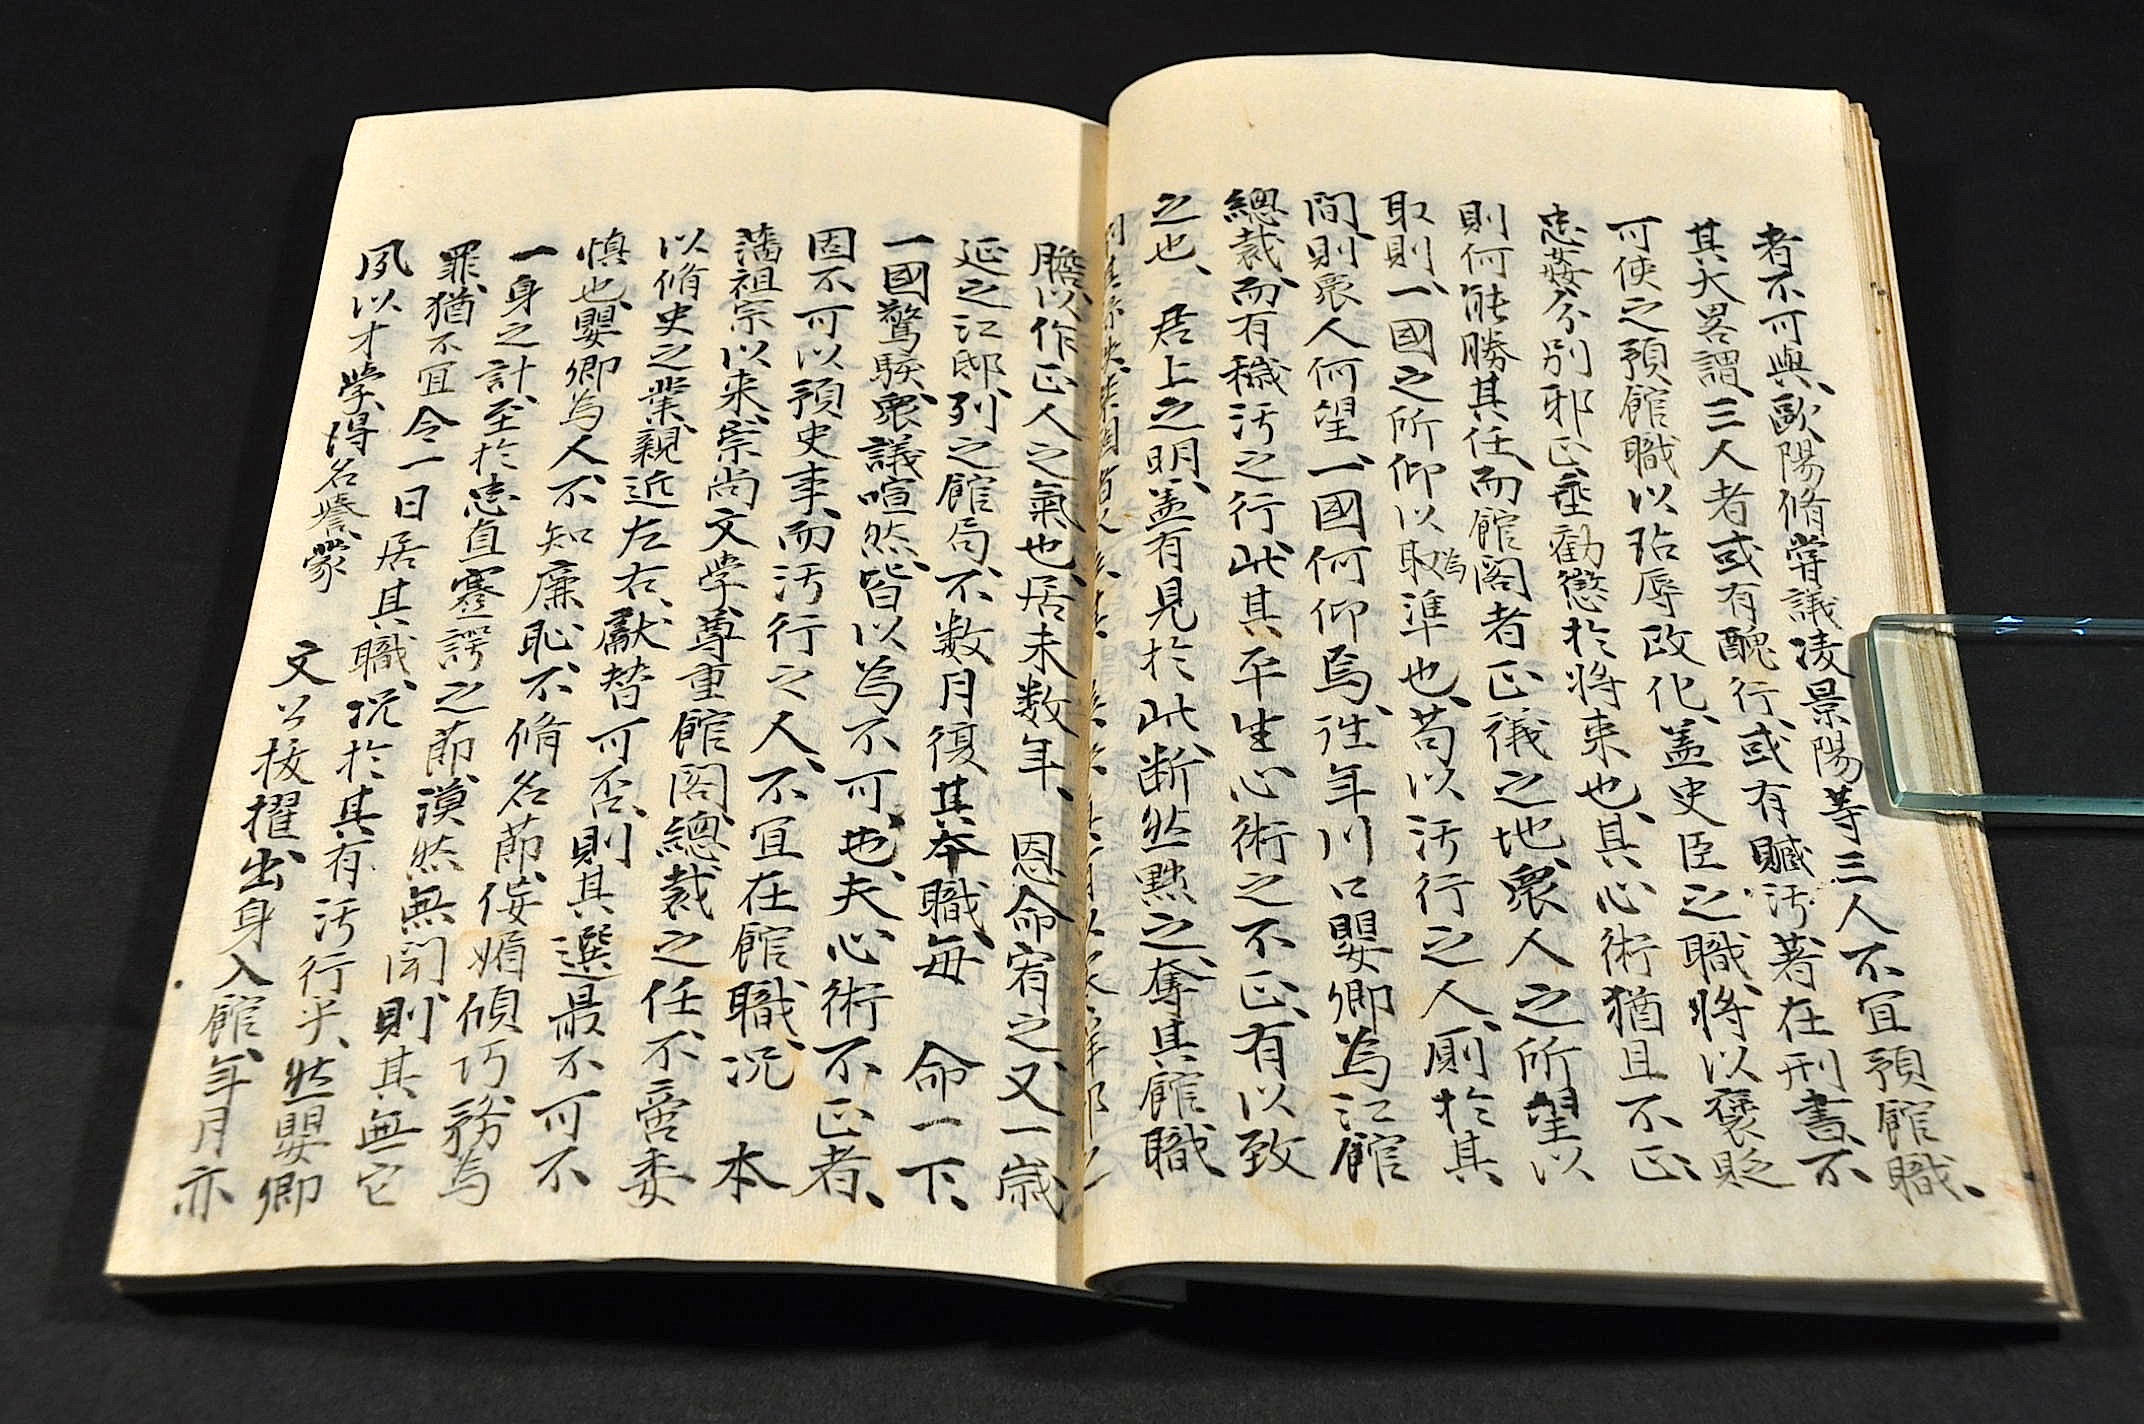 者不可與、歐陽脩嘗議凌景陽等三人不宜預館職、
其大畧謂、三人者或有醜行、或有贓汚、著在刑書、不
可使之預館職以玷辱政化、蓋史臣之職、將以褒貶
忠姦分別邪正、垂勸懲於將来也、其心術猶且不正、
則何能勝其任、而館閣者正議之地、衆人之所望以
取則、一國之所仰以取為準也、苟以汚行之人、厠於其
間、則衆人何望、一國何仰焉、往年川口嬰卿為江館
總裁、而有穢汚之行、此其平生心術之不正、有以致
之也、居上之明、蓋有見於此、断然黜之、奪其館職
膽、以作正人之氣也、居未数年、恩命宥之、又一歳
延之江邸、列之館局、不数月復其本職、毎命一下、
一國驚駭、衆議喧然、皆以為不可也、夫心術不正者、
固不可以預史事、而汚行之人、不宜在館職、況本
藩祖宗以来、崇尚文学、尊重館閣、總裁之任、不啻委
以脩史之業、親近左右、獻替可否、則其選最不可不
慎也、嬰卿為人、不知廉恥、不脩名節、佞媚傾巧務為
一身之計、至於忠直蹇諤之節、漠然無聞、則其無它
罪、猶不宜令一日居其職、況於其有汚行乎、然嬰卿
夙以才学得名誉、蒙文公抜擢、出身入館、年月亦